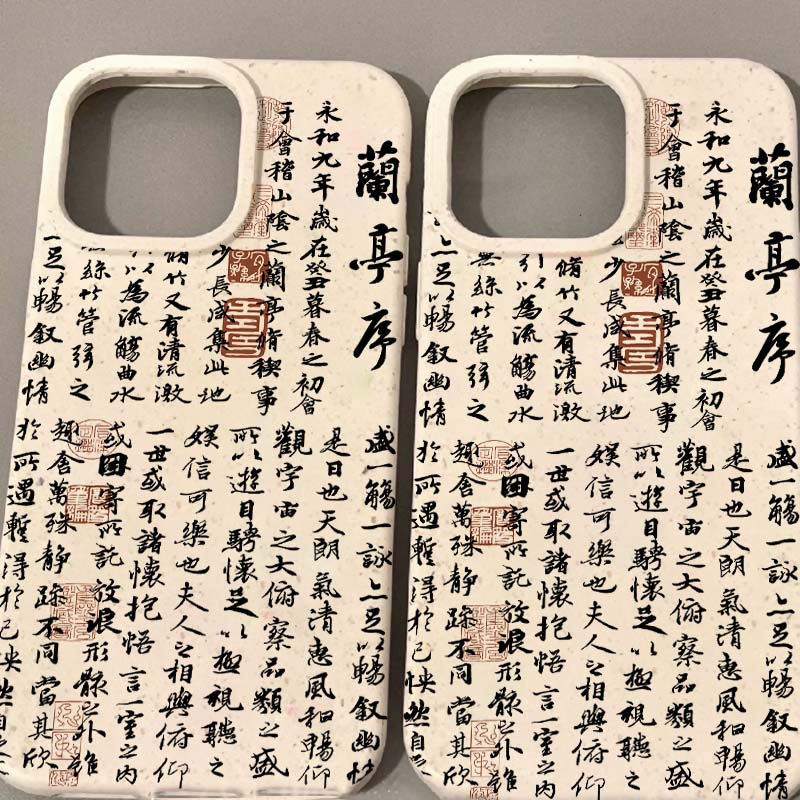 蘭亭序
永和九年歲在癸丑暮春之初會
于會稽山陰之蘭亭脩稧事
少長咸集此地
脩竹又有清流激
引以為流觴曲水
絲竹管弦之
足以暢敘幽情
盛一觴一詠亦足以暢敘幽情
是日也天朗氣清惠風和暢仰
觀宇宙之大俯察品類之盛
所以遊目騁懷足以極視聽之
娛信可樂也夫人之相與俯仰
一世或取諸懷抱悟言一室之內
或因寄所託放浪形骸之外雖
趣舍萬殊静躁不同當其欣
於所遇蹔得於己怏然自
蘭亭序
永和九年歲在癸丑暮春之初會
于會稽山陰之蘭亭脩稧事
少長咸集此地
脩竹又有清流激
引以為流觴曲水
無絲竹管弦之
足以暢敘幽情
盛一觴一詠亦足以暢敘幽情
是日也天朗氣清惠風和暢仰
觀宇宙之大俯察品類之盛
所以遊目騁懷足以極視聽之
娛信可樂也夫人之相與俯仰
一世或取諸懷抱悟言一室之內
或因寄所託放浪形骸之外雖
趣舍萬殊静躁不同當其欣
於所遇蹔得於己怏然自